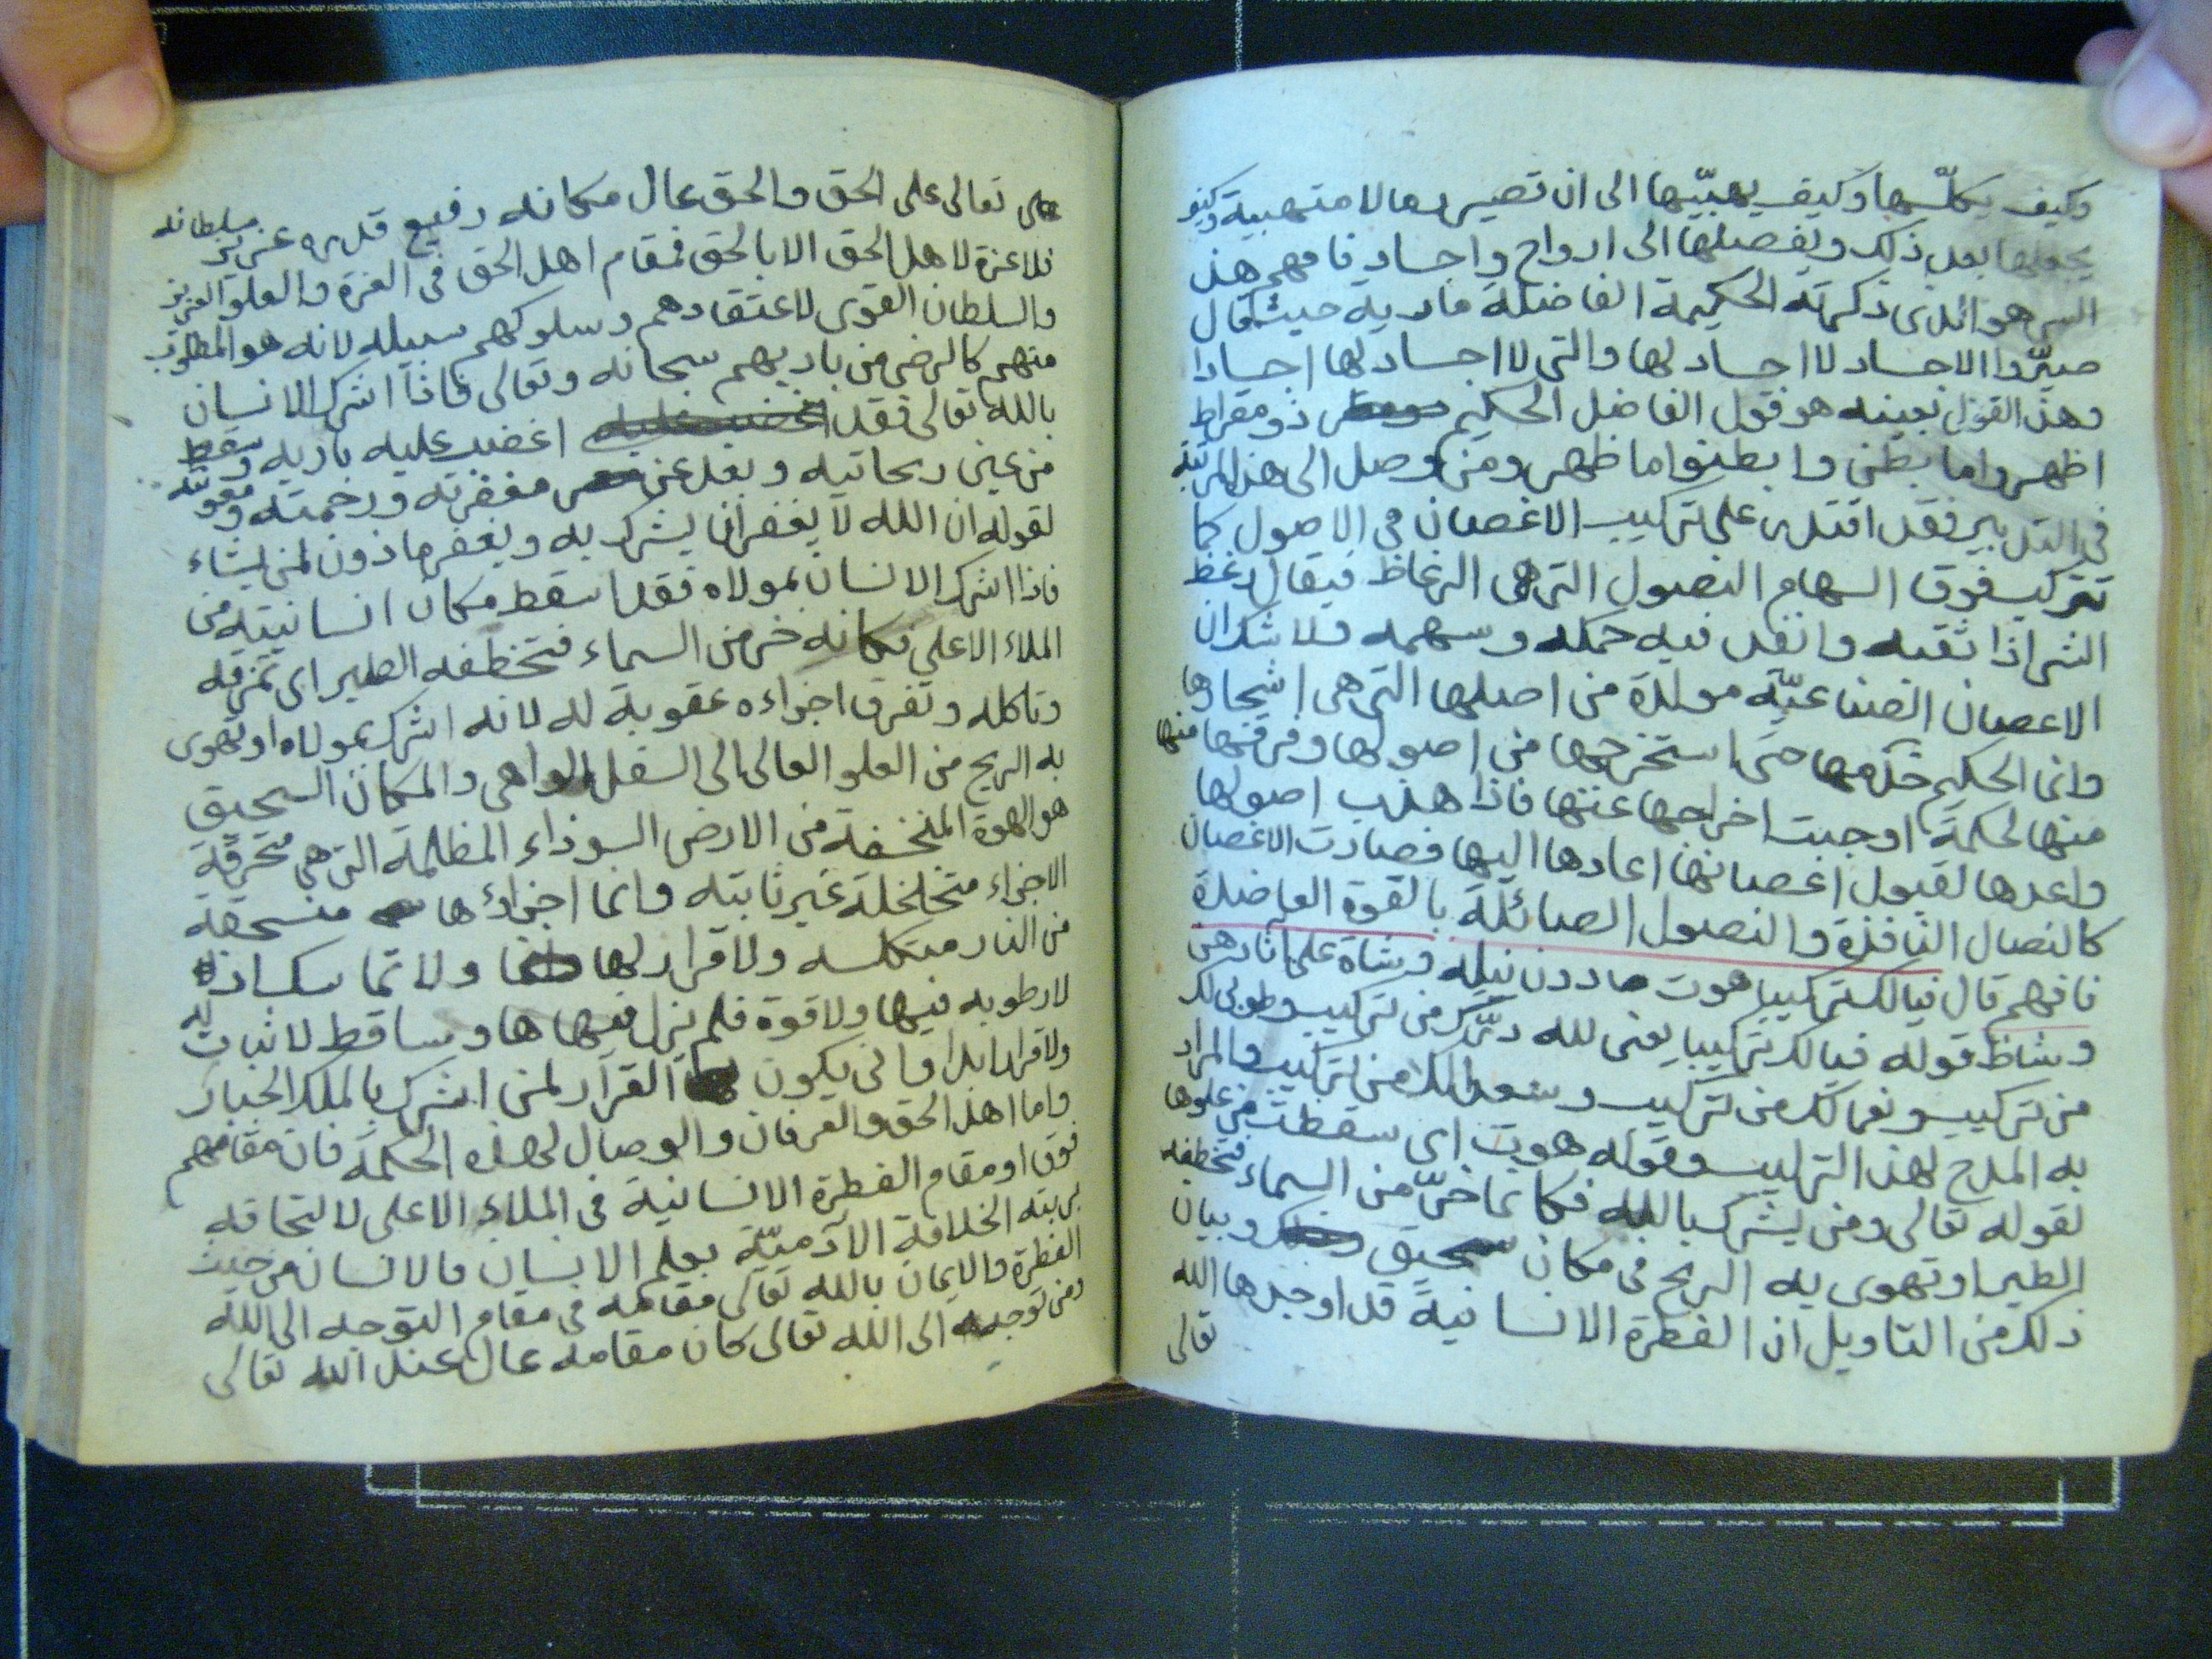 وكيف يكلّسها وكيف يهبّيها الى ان تصير رمالا متهبية وكيف
يجعلها بعد ذلك ويفصلها الى ارواح واجساد فافهم هذا
السر هو الذى ذكرته الحكيمة الفاضلة مارية حيث قال
صيّروا الاجساد لا اجساد لها والتى لا اجساد لها اجسادا
وهذا القول بعينه هو قول الفاضل الحكيم ذومقراط
اظهروا ما بطن وابطنوا ما ظهر ومن وصل الى هذه المرتبة
فى التدبير فقد اقتدر على تركيب الاغصان فى الاصول كما
تتركب فوق السهام النصول التى هى الرعاظ فيقال رعظ
الشى اذا ثقبه وانفد فيه حمكه وسهمه ولا شك ان
الاعصان الصناعيّة مولدة من اصلها التى هى اشجارها
وانما الحكيم خدمها حتى استخرجها من اصولها وفرقها منها
منها لحكمة اوجبت اخراجها عنها فاذا هذب اصولها
واعدها لقبول اغصانها اعادها اليها فصارت الاغصان
كالنصال النافذة والنصول الصائلة بالقوة الفاضلة
فافهم قال فيالك تركيبا هوت مادون نيله وشاة على اثارهن
وشاظ قوله فيالك تركيبا يعنى لله درّك من تركيب وطوبى لك
من تركيب ونعم لك من تركيب وسعدا لك من تركيب والمراد
به المدح لهذا التركيب وقوله هوت اى سقطت من علوها
لقوله تعالى ومن يشرك بالله فكانما خرّ من السماء فتخطفه
الطير او تهوى به الريح فى مكان سحيق وبيان
ذلك من التاويل ان الفطرة الانسانية قد اوجدها الله
تعالى
تعالى على الحق والحق عال مكانه رفيع قدره عزيز سلطانه
فلا عزة لاهل الحق الا بالحق فمقام اهل الحق فى العزة والعلو العزيز
والسلطان القوى لاعتقادهم وسلوكهم سبيله لانه هو المطلوب
منهم كالرضى من باريهم سبحانه وتعالى فاذا اشرك الانسان
بالله تعالى فقد اغضب عليه باريه وسقط
من عين ريحانيه وبعد عن مغفرته ورحمته ومعونته
لقوله ان الله لا يغفر ان يشرك به ويغفر مادون لمن يشاء
فاذا اشرك الانسان بمولاه فقد اسقط مكان انسانيته من
الملاء الاعلى فكانه خر من السماء فتخطفه الطير اى تمزقه
وتاكله وتفرق اجزاءه عقوبة له لانه اشرك بمولاه او تهوى
به الريح من العلو العالى الى السفل الواهى والمكان السحيق
هو الهوة المنخسفة من الارض السوداء المظلمة التى هى متحرقة
الاجزاء متخلخلة غير ثابته وانما اجزاؤها منسحقة
من النار متكلسه ولا قرار لها ولا تماسك اذ
لا رطوبه فيها ولا قوة فلم نزل فيها هاو ساقط لا ثبات له
ولا قرار ابدا وانى يكون القرار لمن اشرك بالملك الجبار
واما اهل الحق والعرفان والوصال لهذه الحكمة فان مقامهم
فوق اومقام الفطرة الانسانية فى الملاء الاعلى لالتحاقه
برتبته الخلافة الآدميّة بعلم الانسان فالانسان من حيث
الفطرة والايمان بالله تعالى مقامه فى مقام التوجه الى الله
ومن توجه الى الله تعالى كان مقامه عال عند الله تعالى